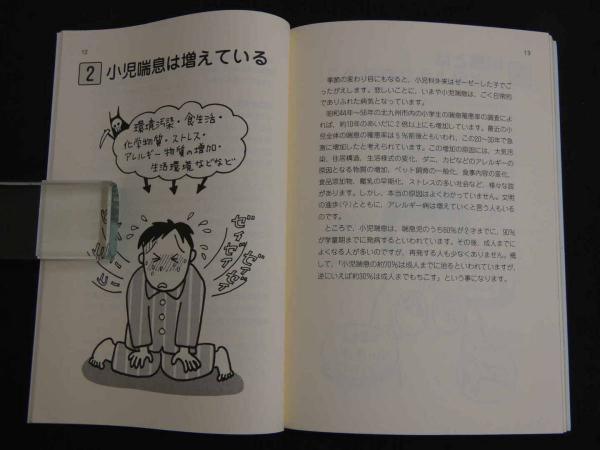 12
2 小児喘息は増えている
環境汚染・食生活・
化学物質・ストレス・
アレルギー物質の増加・
生活環境などなど
ゼイゼイ
ゼイゼイ
13
季節の変わり目にもなると、小児科外来はゼーゼーした子でご
ったがえします。悲しいことに、いまや小児喘息は、ごく日常的
でありふれた病気となっています。
昭和44年〜56年の北九州市内の小学生の喘息罹患率の調査によ
れば、約10年のあいだに2倍以上にも増加しています。最近の小
児全体の喘息の罹患率は5%前後ともいわれ、この20〜30年で急
激に増加したと考えられています。この増加の原因には、大気汚
染、住居構造、生活様式の変化、ダニ、カビなどのアレルギーの
原因となる物質の増加、ペット飼育の一般化、食事内容の変化、
食品添加物、離乳の早期化、ストレスの多い社会など、様々な説
があります。しかし、本当の原因はよくわかっていません。文明
の進歩(?)とともに、アレルギー病は増えていくと言う人もいる
のです。
ところで、小児喘息は、喘息児のうち60%が2才までに、90%
が学童期までに発病するといわれています。その後、成人までに
よくなる人が多いのですが、再発する人も少なくありません。概し
て、「小児喘息の約70%は成人までに治るといわれていますが、
逆にいえば約30%は成人までもちこす」という事になります。